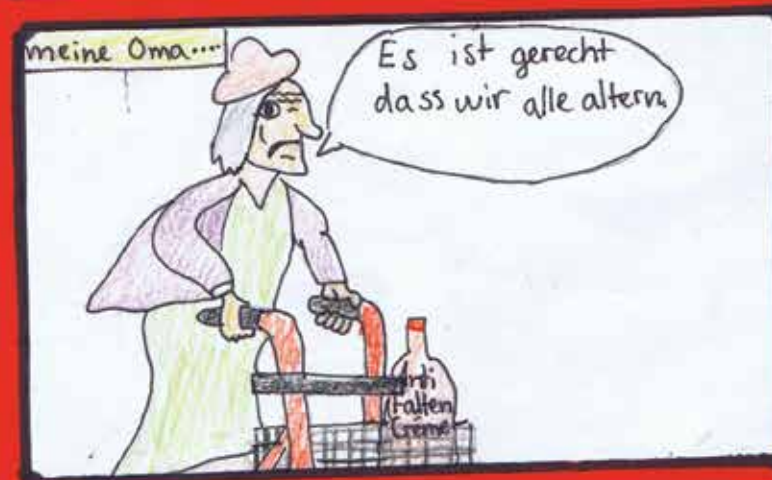 meine Oma....
Es ist gerecht
dass wir alle altern.
Anti
Falten
Creme